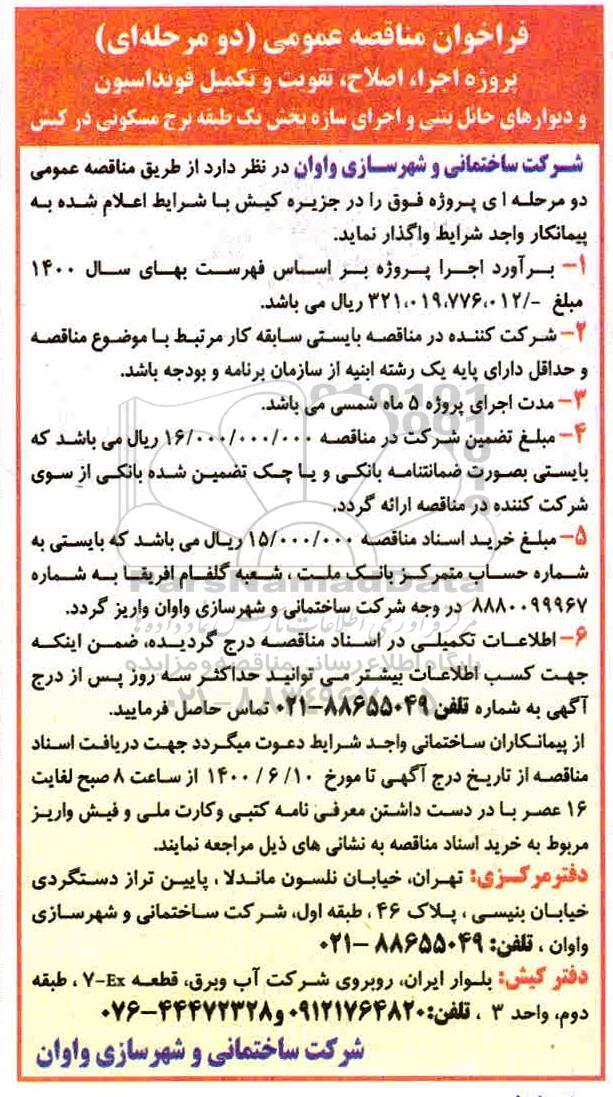 فراخوان مناقصه عمومی (دو مرحله‌ای)
پروژه اجرا، اصلاح، تقویت و تکمیل فونداسیون
و دیوارهای حائل بتنی و اجرای سازه بخش یک طبقه برج مسکونی در کیش
شرکت ساختمانی و شهرسازی واوان در نظر دارد از طریق مناقصه عمومی
دو مرحله ا ی پروژه فوق را در جزیره کیش با شرایط اعلام شده به
پیمانکار واجد شرایط واگذار نماید.
۱- برآورد اجرا پروژه بر اساس فهرست بهای سال ۱۴۰۰
مبلغ -/۳۲۱،۰۱۹،۷۷۶،۰۱۲ ریال می باشد.
۲- شرکت کننده در مناقصه بایستی سابقه کار مرتبط با موضوع مناقصه
و حداقل دارای پایه یک رشته ابنیه از سازمان برنامه و بودجه باشد.
۳- مدت اجرای پروژه ۵ ماه شمسی می باشد.
۴- مبلغ تضمین شرکت در مناقصه ۱۶/۰۰۰/۰۰۰/۰۰۰ ریال می باشد که
بایستی بصورت ضمانتنامه بانکی و یا چک تضمین شده بانکی از سوی
شرکت کننده در مناقصه ارائه گردد.
۵- مبلغ خرید اسناد مناقصه ۱۵/۰۰۰/۰۰۰ ریال می باشد که بایستی به
شماره حساب متمرکز بانک ملت ، شعبه گلفام افریقا به شماره
۸۸۸۰۰۹۹۹۶۷ در وجه شرکت ساختمانی و شهرسازی واوان واریز گردد.
۶- اطلاعات تکمیلی در اسناد مناقصه درج گردیده، ضمن اینکه
جهت کسب اطلاعات بیشتر می توانید حداکثر سه روز پس از درج
آگهی به شماره تلفن ۸۸۶۵۵۰۴۹-۰۲۱ تماس حاصل فرمایید.
از پیمانکاران ساختمانی واجد شرایط دعوت میگردد جهت دریافت اسناد
مناقصه از تاریخ درج آگهی تا مورخ ۱۰/ ۶ / ۱۴۰۰ از ساعت ۸ صبح لغایت
۱۶ عصر با در دست داشتن معرفی نامه کتبی وکارت ملی و فیش واریز
مربوط به خرید اسناد مناقصه به نشانی های ذیل مراجعه نمایند.
دفترمرکزی: تهران، خیابان نلسون ماندلا ، پایین تراز دستگردی
خیابان بنیسی ، پلاک ۴۶ ، طبقه اول، شرکت ساختمانی و شهرسازی
واوان ، تلفن: ۸۸۶۵۵۰۴۹ -۰۲۱
دفتر کیش: بلوار ایران، روبروی شرکت آب وبرق، قطعه Ex-۷ ، طبقه
دوم، واحد ۳ ، تلفن:۰۹۱۲۱۷۶۴۸۲۰ و۴۴۴۷۲۳۲۸-۰۷۶
شرکت ساختمانی و شهرسازی واوان
ParsNamadData
پایگاه اطلاع رسانی مناقصه و مزایده